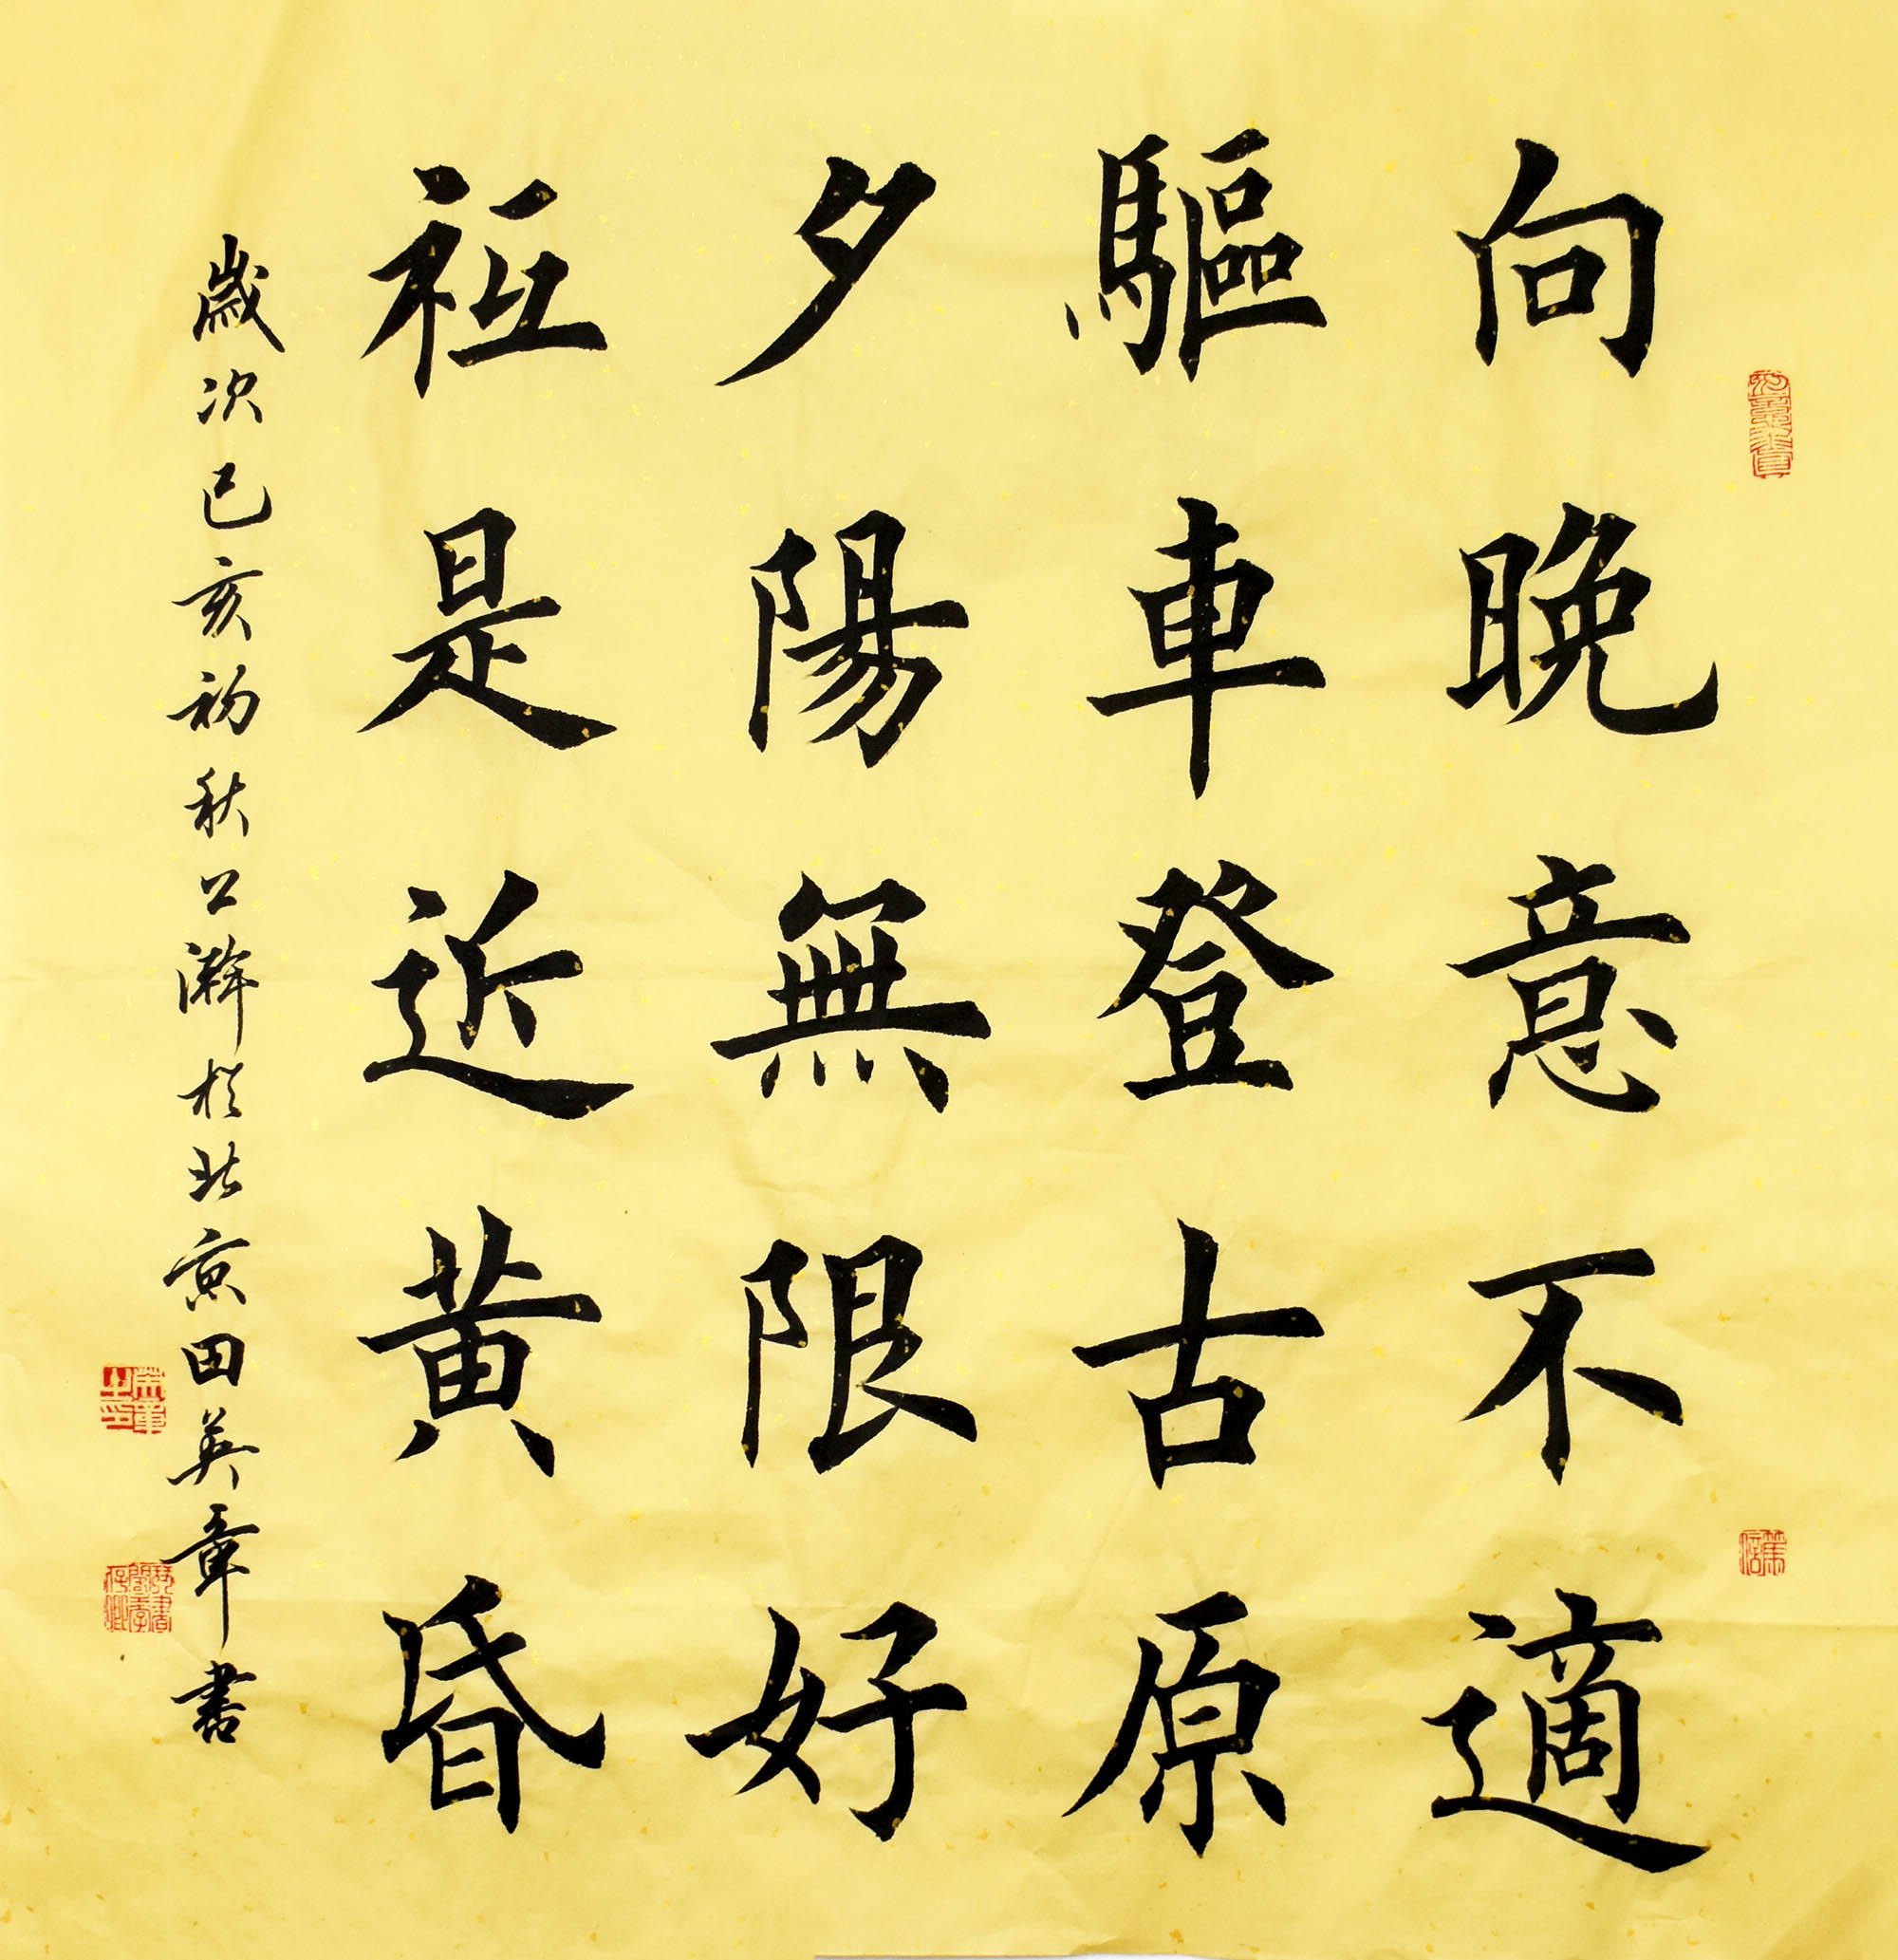 向晚意不適
驅車登古原
夕陽無限好
祗是近黃昏
歲次己亥初秋公澣於北京田英章書